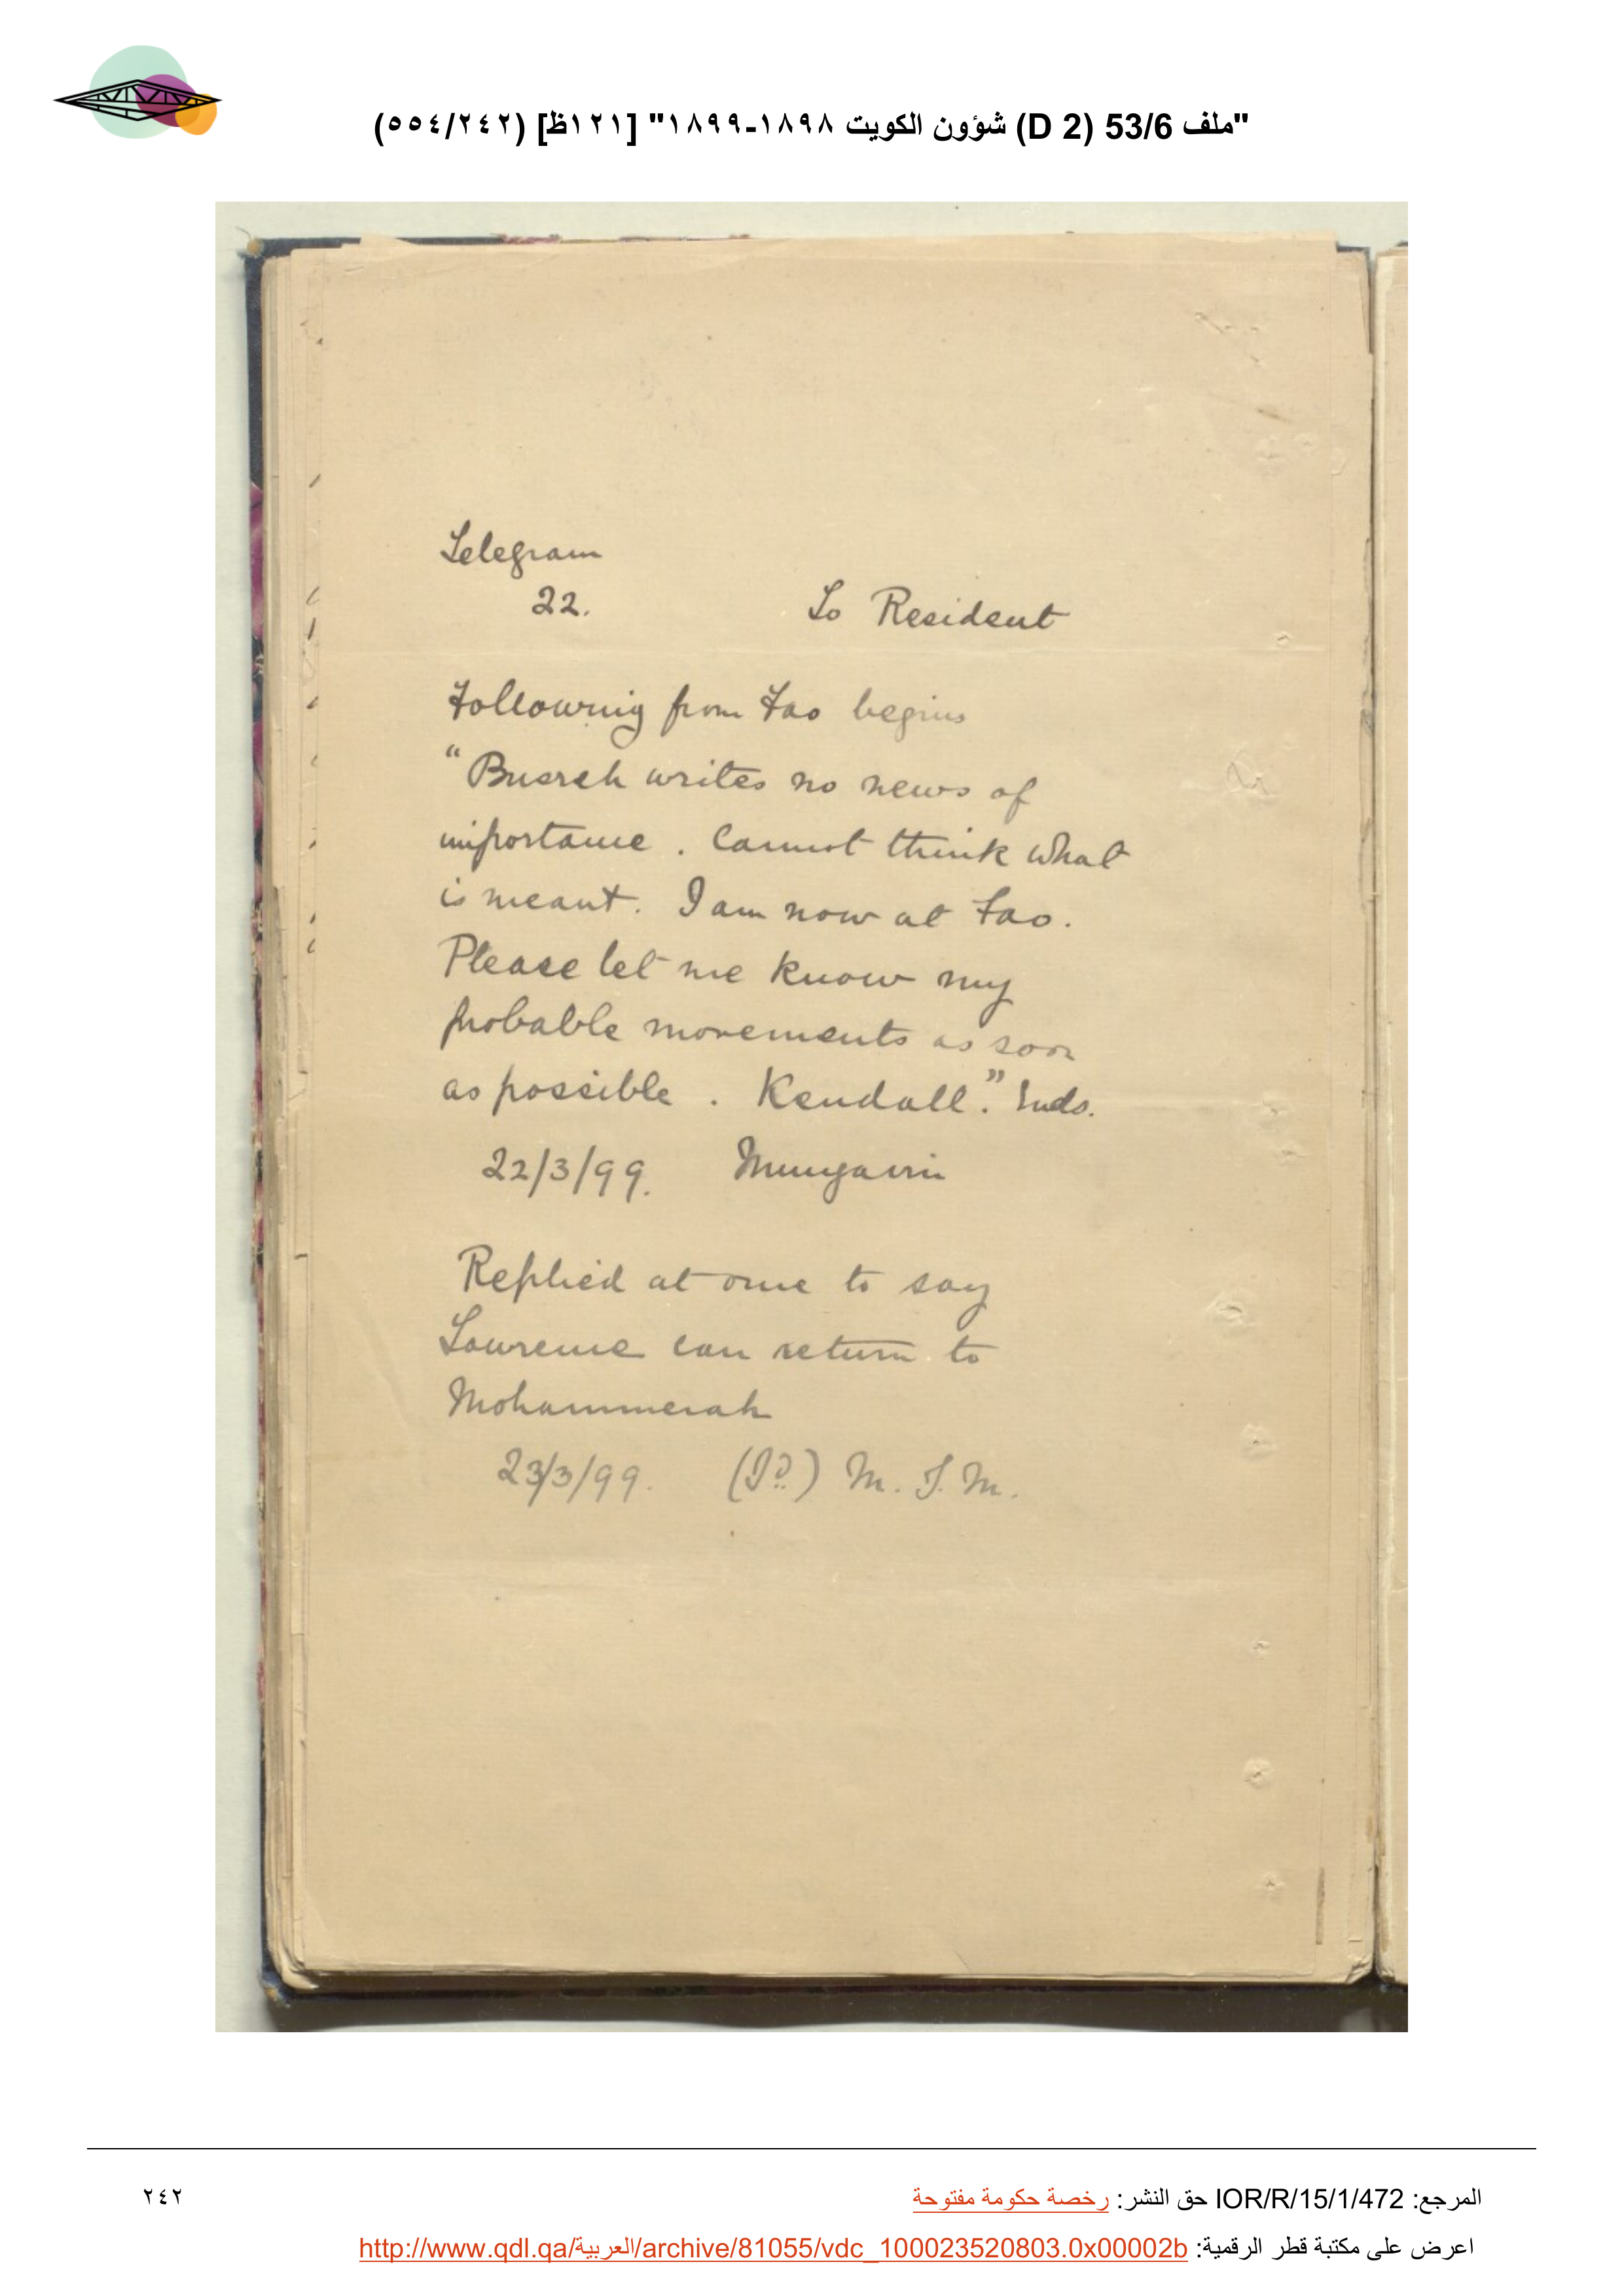 "ملف 53/6 (D 2) شؤون الكويت ١٨٩٨-١٨٩٩" [١٢١ظ] (٥٥٤/٢٤٢)
Telegram
22. To Resident
Following from Fao begins
"Busreh writes no news of
importance. Cannot think what
is meant. I am now at Fao.
Please let me know my
probable movements as soon
as possible. Kendall." Ends.
22/3/99. Mungavin
Replied at once to say
Lawrence can return to
Mohammerah
23/3/99. (Sd.) M. J. M.
المرجع: IOR/R/15/1/472 حق النشر: رخصة حكومة مفتوحة
٢٤٢
اعرض على مكتبة قطر الرقمية: http://www.qdl.qa/العربية/archive/81055/vdc_100023520803.0x00002b